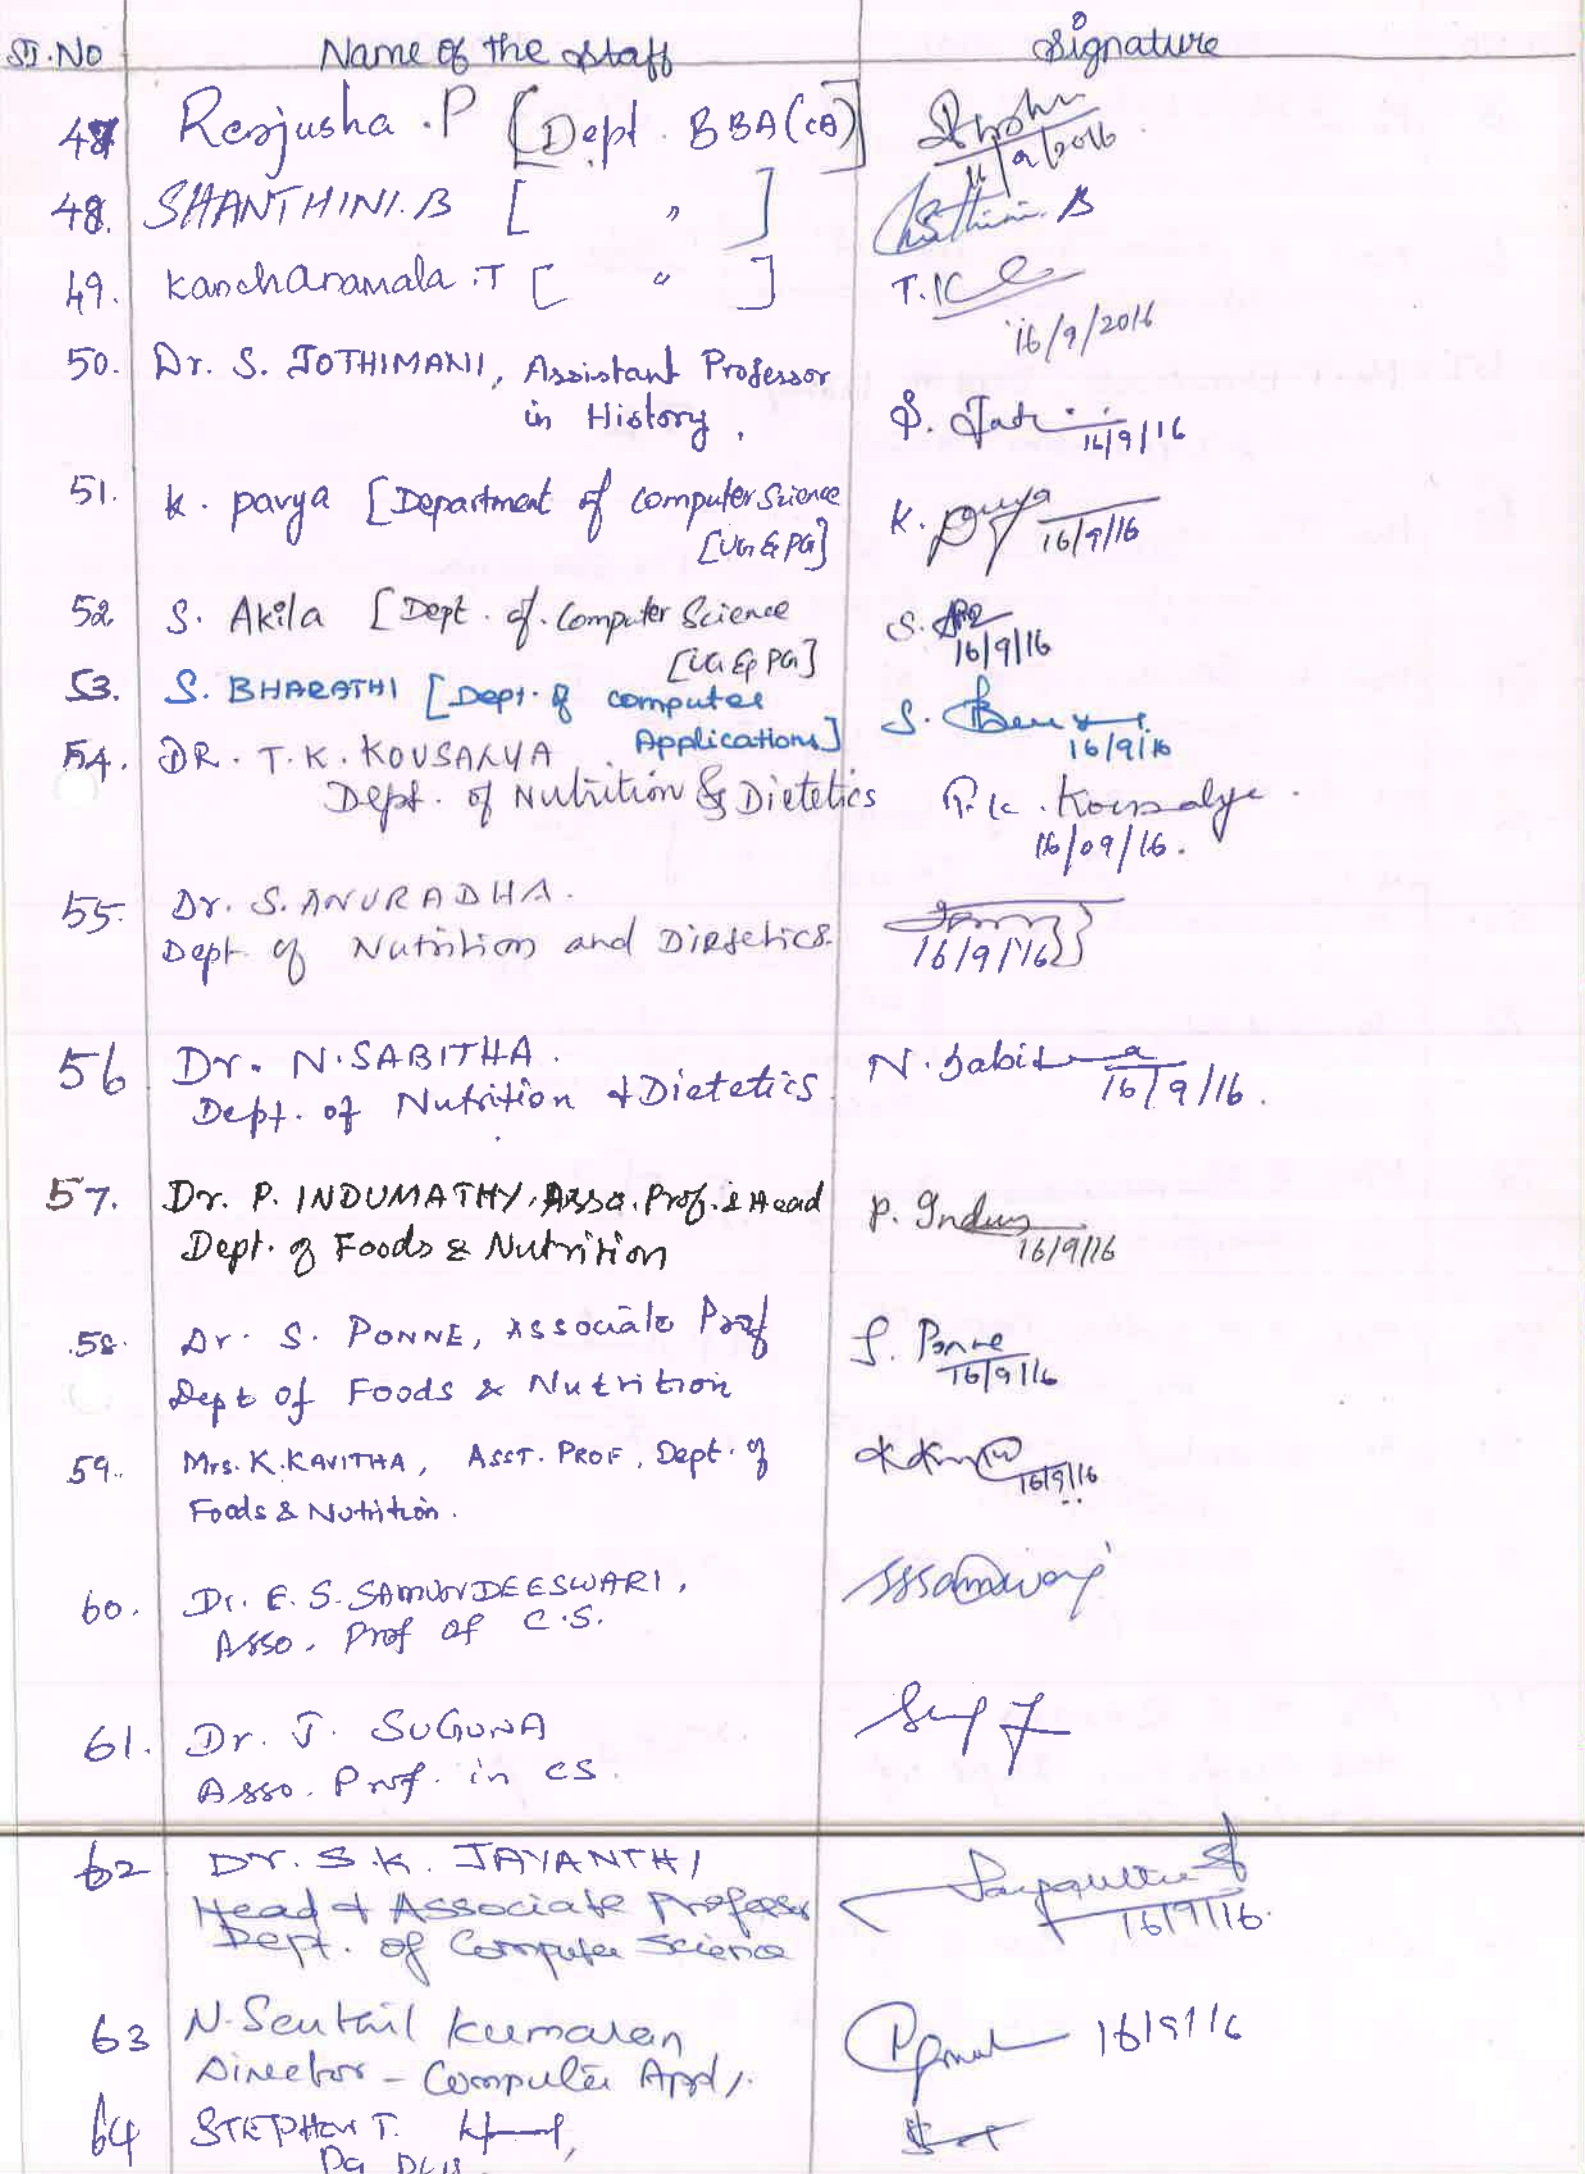 Sl.No Name of the Staff Signature
47 Renjusha .P [Dept. BBA(CA)]
16/9/2016
48. SHANTHINI.B [ " ] B
49. Kanchanamala .T [ " ] T.K
16/9/2016
50. Dr. S. JOTHIMANI, Assistant Professor
in History. S. 16/9/16
51. K. Pavya [Department of Computer Science K.
[UG & PG] 16/9/16
52. S. Akila [Dept. of. Computer Science S.
[UG & PG] 16/9/16
53. S. BHARATHI [Dept. of Computer S.
Applications] 16/9/16
54. DR. T.K. KOUSALYA
Dept. of Nutrition & Dietetics T.K. Kousalya.
16/09/16.
55. Dr. S. ANURADHA.
Dept of Nutrition and Dietetics. 16/9/16
56 Dr. N. SABITHA. N. Sabitha
Dept. of Nutrition & Dietetics 16/9/16.
57. Dr. P. INDUMATHY, Asso. Prof. & Head P. Indu
Dept. of Foods & Nutrition 16/9/16
58. Dr. S. PONNE, Associate Prof S. Ponne
Dept of Foods & Nutrition 16/9/16
59. Mrs. K. KAVITHA, ASST. PROF, Dept. of
Foods & Nutrition. 16/9/16
60. Dr. E. S. SAMUNDEESWARI,
Asso. Prof of C.S.
61. Dr. J. SUGUNA
Asso. Prof. in CS.
62 Dr. S.K. JAYANTHI
Head & Associate Professor
Dept. of Computer Science 16/9/16.
63 N. Senthil Kumaran 16/9/16
Director - Computer Appl.
64 STEPHEN T.